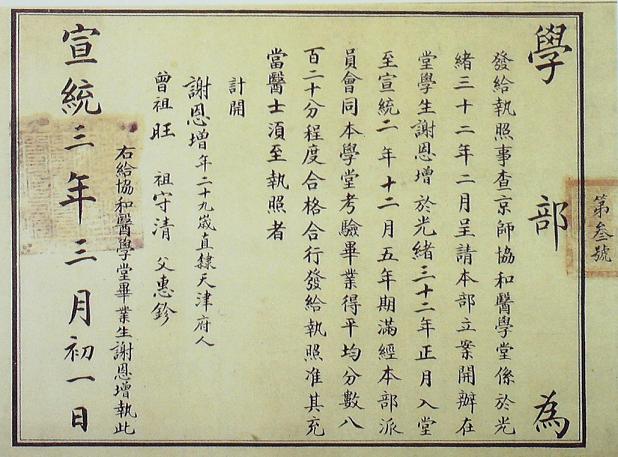 第叁號
學部為
發給執照事查京師協和醫學堂係於光
緒三十二年二月呈請本部立案開辦在
堂學生謝恩增於光緒三十二年正月入堂
至宣統二年十二月五年期滿經本部派
員會同本學堂考驗畢業得平均分數八
百二十分程度合格合行發給執照准其充
當醫士湏至執照者
計開
謝恩增年二十九歲直隸天津府人
曾祖旺 祖守清 父惠鉁
右給協和醫學堂畢業生謝恩增執此
宣統三年三月初一日